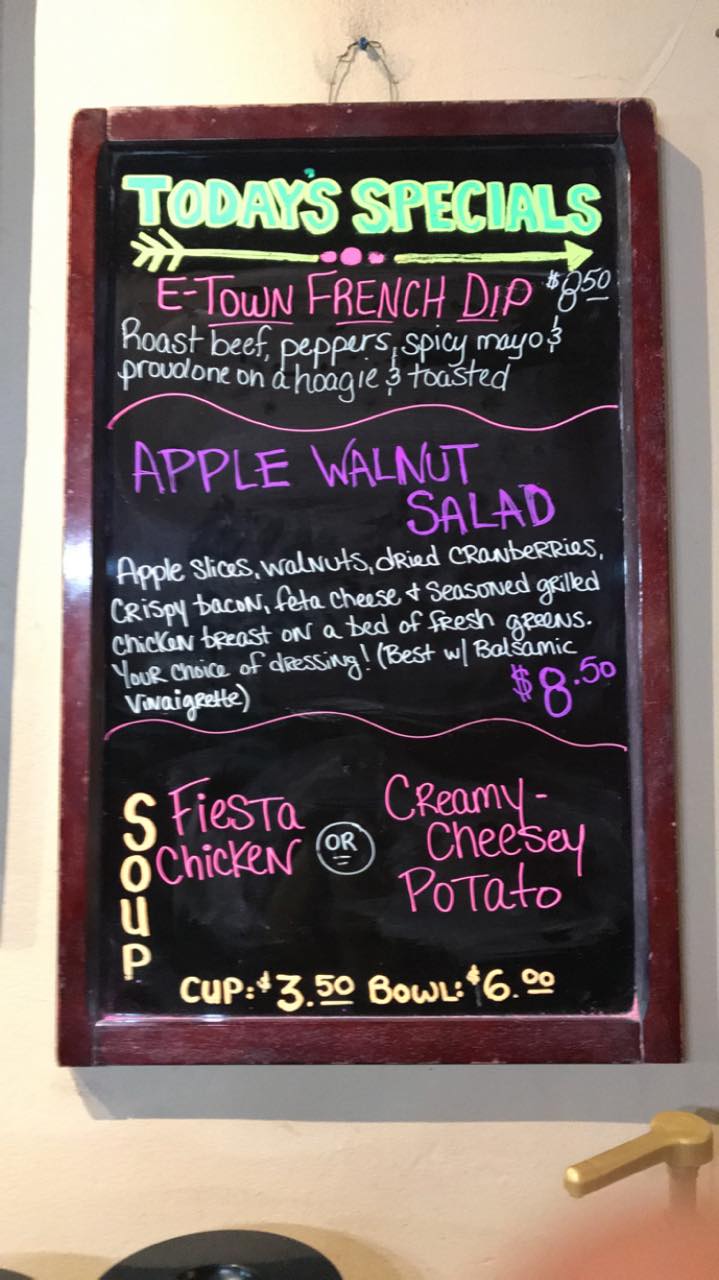 TODAY'S SPECIALS
E-TOWN FRENCH DIP $8.50
Roast beef, peppers, spicy mayo &
proudlone on a hoagie & toasted
APPLE WALNUT
SALAD
Apple slices, walnuts, dried cranberries,
crispy bacon, feta cheese + seasoned grilled
chicken breast on a bed of fresh greens.
Your choice of dressing! (Best w/ Balsamic
Vinaigrette)
$8.50
SOUP
Fiesta
Chicken
OR
Creamy-
Cheesey
Potato
CUP: $3.50 BOWL: $6.00